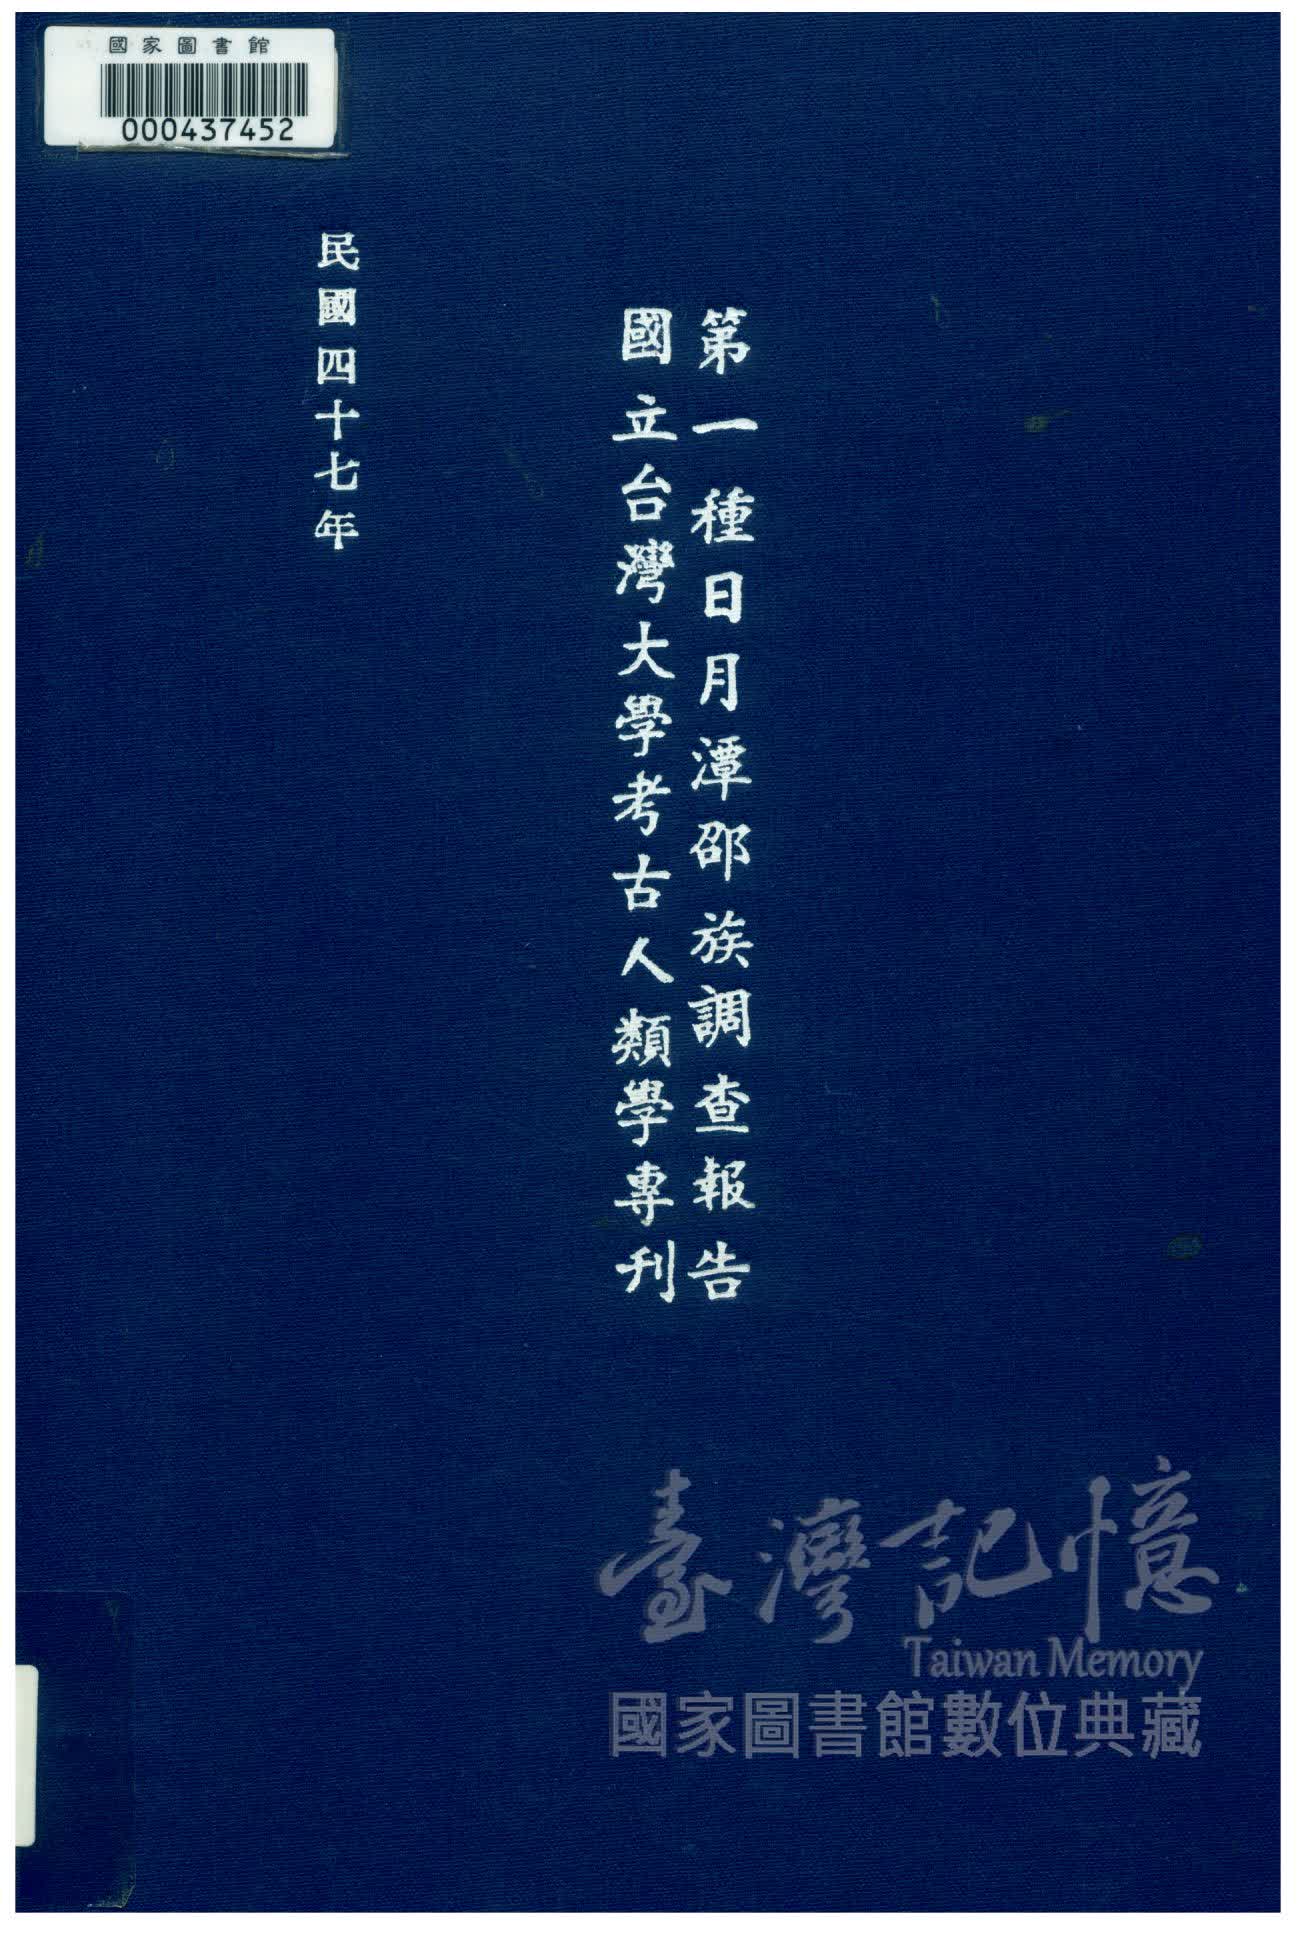 國家圖書館
000437452
第一種日月潭邵族調查報告
國立台灣大學考古人類學專刊
民國四十七年
臺灣記憶
Taiwan Memory
國家圖書館數位典藏